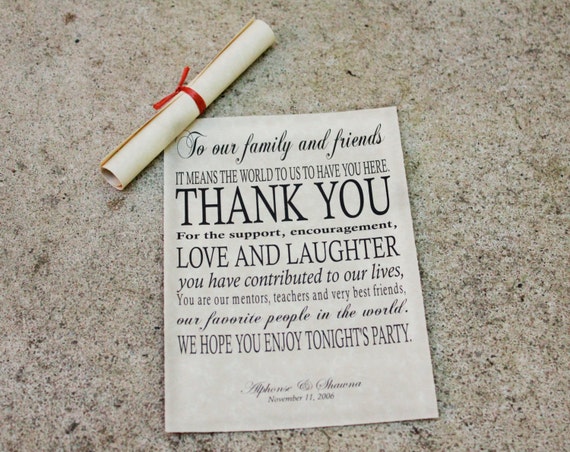 To our family and friends
IT MEANS THE WORLD TO US TO HAVE YOU HERE.
THANK YOU
For the support, encouragement,
LOVE AND LAUGHTER
you have contributed to our lives,
You are our mentors, teachers and very best friends,
our favorite people in the world.
WE HOPE YOU ENJOY TONIGHT'S PARTY.
Alphonse & Shawna
November 11, 2006